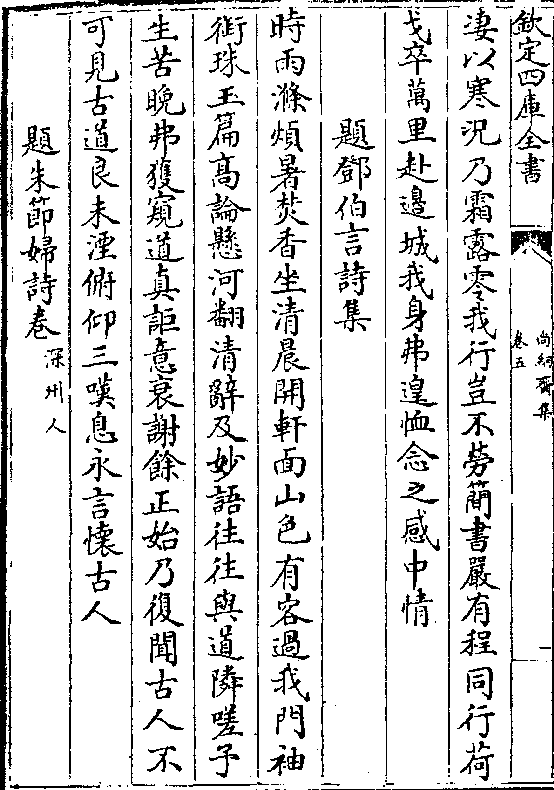 欽定四庫全書
尚絅齋集
卷五
淒以寒況乃霜露零我行豈不勞簡書嚴有程同行荷
戈卒萬里赴邊城我身弗遑恤念之感中情
題鄧伯言詩集
時雨滌煩暑焚香坐清晨開軒面山色有客過我門袖
銜珠玉篇高論懸河翻清辭及妙語往往與道隣嗟予
生苦晚弗獲窺道真詎意衰謝餘正始乃復聞古人不
可見古道良未湮俯仰三嘆息永言懷古人
題朱節婦詩卷
深州人